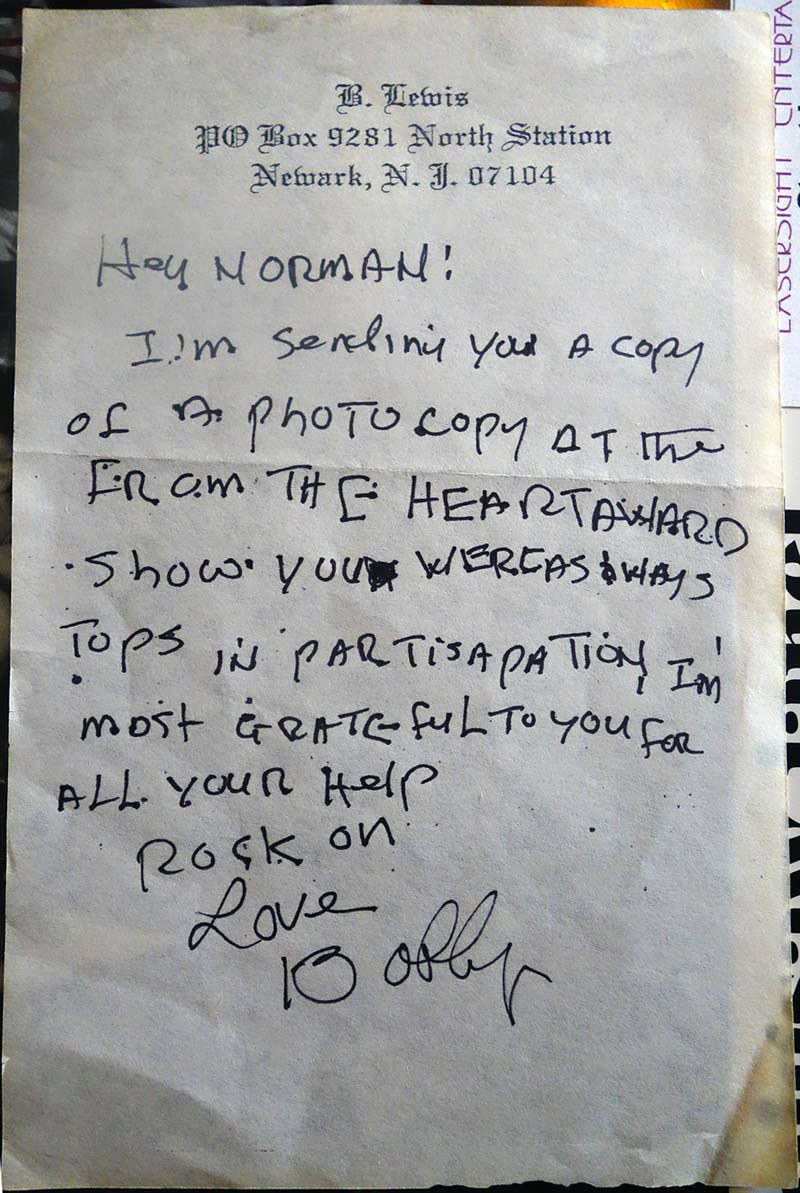 B. Lewis
PO Box 9281 North Station
Newark, N. J. 07104
Hey NORMAN!
I'm sending you A copy
of A PHOTO copy AT the
FROM THE HEART AWARD
Show. YOU WERE AS ALWAYS
TOPS IN PARTISAPATION, I'm
most GRATEfuL TO YOU FOR
ALL YOUR HELP
ROCK ON
Love
Bobby
LASERSIGHT ENTERTA